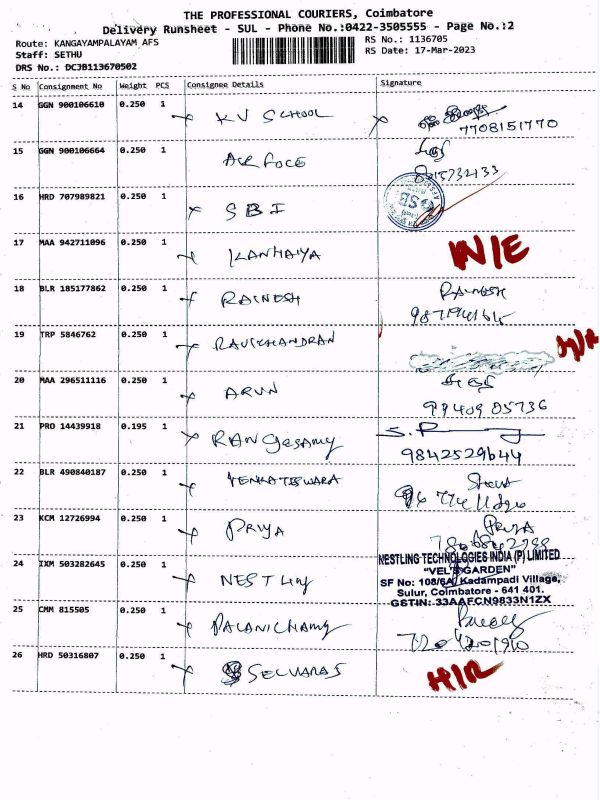 THE PROFESSIONAL COURIERS, Coimbatore
Delivery Runsheet - SUL - Phone No.:0422-3505555 - Page No.:2
Route: KANGAYAMPALAYAM AFS
RS No.: 1136705
Staff: SETHU
RS Date: 17-Mar-2023
DRS No.: DCJB113670502
S No Consignment No Weight PCS Consignee Details Signature
14 GGN 900106610 0.250 1 KV SCHOOL
7708151770
15 GGN 900106664 0.250 1 AIR FOCE
16 HRD 707989821 0.250 1 SBI
17 MAA 942711096 0.250 1 KANHAIYA N/E
18 BLR 185177862 0.250 1 RAINESH
19 TRP 5846762 0.250 1 RAVICHANDRAN
20 MAA 296511116 0.250 1 ARUN
9940905736
21 PRO 14439918 0.195 1 RANGesamy
9842529644
22 BLR 490840187 0.250 1 VENKATESWARA
23 KCM 12726994 0.250 1 PRIYA PRIYA
24 IXM 503282645 0.250 1 NESTLing
NESTLING TECHNOLOGIES INDIA (P) LIMITED
"VEL'S GARDEN"
SF No: 108/6A, Kadampadi Village,
Sulur, Coimbatore - 641 401.
GSTIN: 33AAFCN9833N1ZX
25 CMM 815505 0.250 1 PALANICHAMY
26 HRD 50316807 0.250 1 SELVARAJ